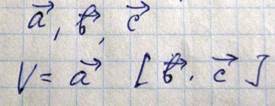 a⃗, b⃗, c⃗
V = a⃗ [b⃗ · c⃗]